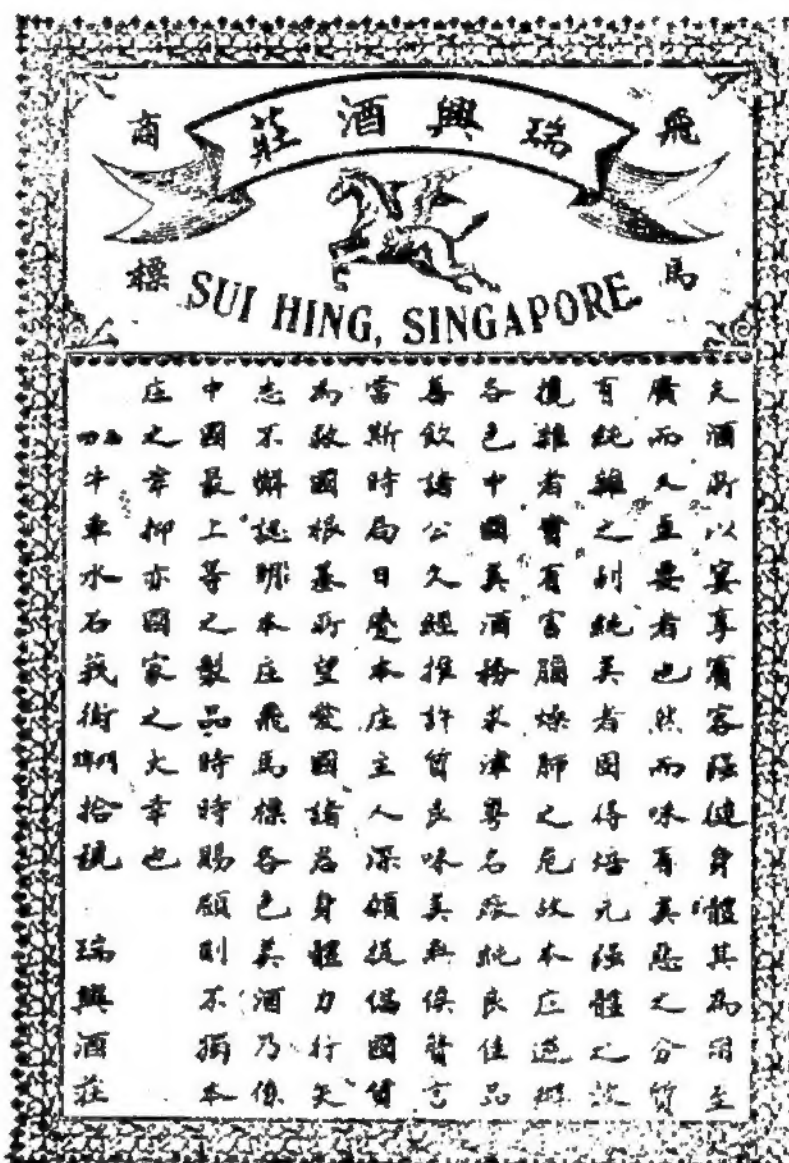 飛馬商標
瑞興酒莊
SUI HING, SINGAPORE
夫酒所以宴享賓客强健身體其為用至
廣而要者也然而味有美惡之分質
有純雜之别純美者固得培元强體之效
攙雜者實有害腸燥肺之危故本庄选辦
各色中國美酒務求津粤名廠純良佳品
善飲諸公久經推許質良味美無俟贅言
當斯時局日蹙本庄主人深願提倡國貨
為救國根基所望愛國諸君身體力行矢
志不懈認明本庄飛馬標各色美酒乃係
中國最上等之製品時時賜顧則不獨本
庄之幸抑亦國家之大幸也
牛車水石莪街拾號 瑞興酒莊